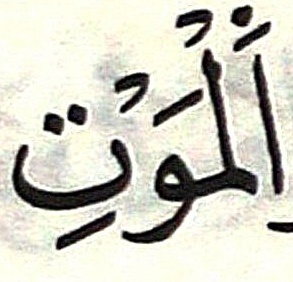 اَلْمَوْتِ